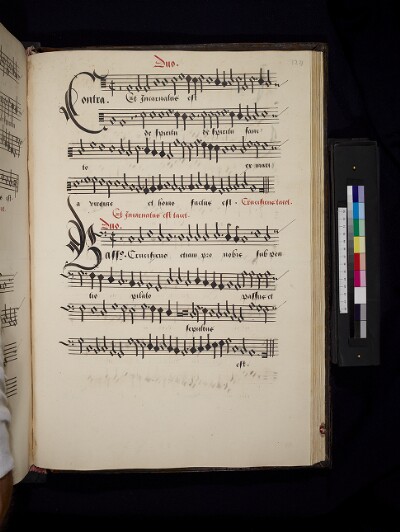 Duo.
Contra. Et Incarnatus est
de spiritu de spiritu sanc
to ex mari
a virgine et homo factus est. Crucifixus tacet.
Et Incarnatus est tacet.
Duo.
Bassus. Crucifixus etiam pro nobis sub pon
tio pilato passus et
sepultus
est.